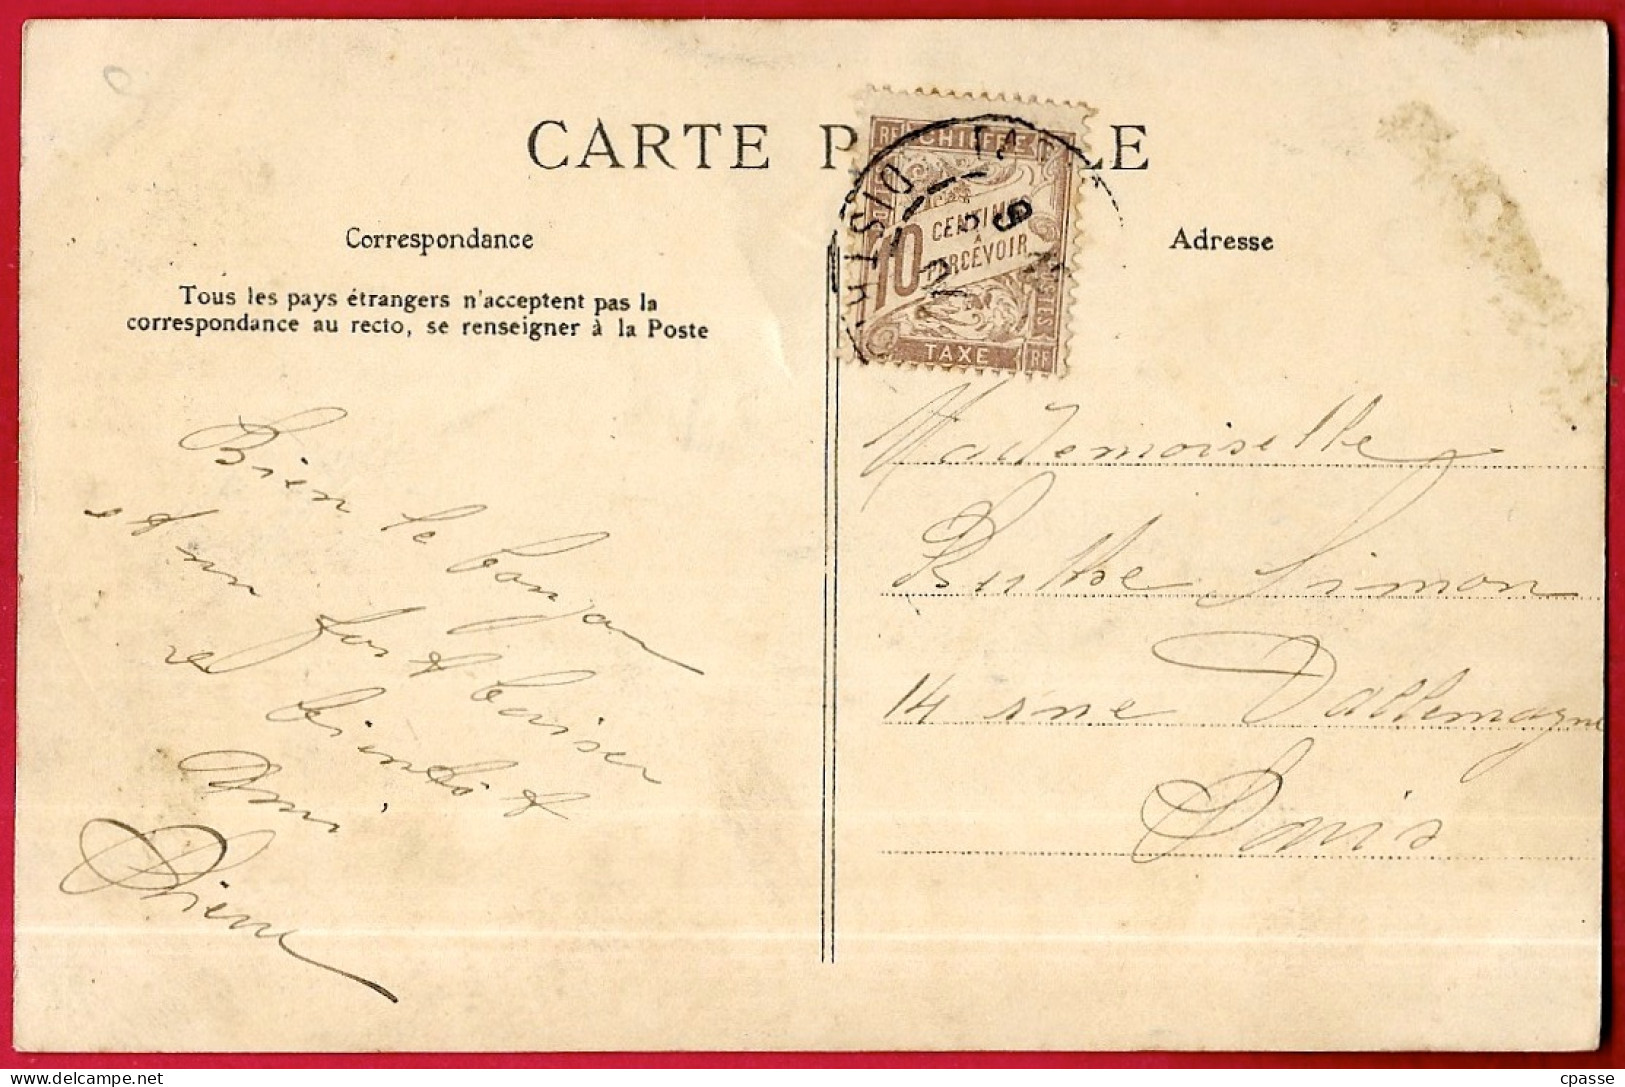 CARTE P LE
Correspondance
Tous les pays étrangers n'acceptent pas la
correspondance au recto, se renseigner à la Poste
Adresse
RF CHIFFRE
10 CENTIMES
A
PERCEVOIR
TAXE RF
DISTR
Bien le bonjour
et un fort baiser
et bientôt
Ami
Pierre
Mademoiselle
Berthe Simon
14 rue Dallemagne
Paris
cpasse